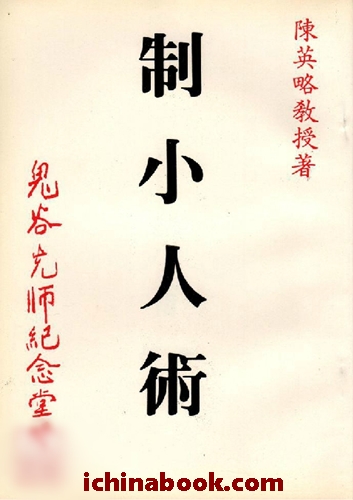 陳英略教授著
制小人術
鬼谷先師紀念堂
ichinabook.com